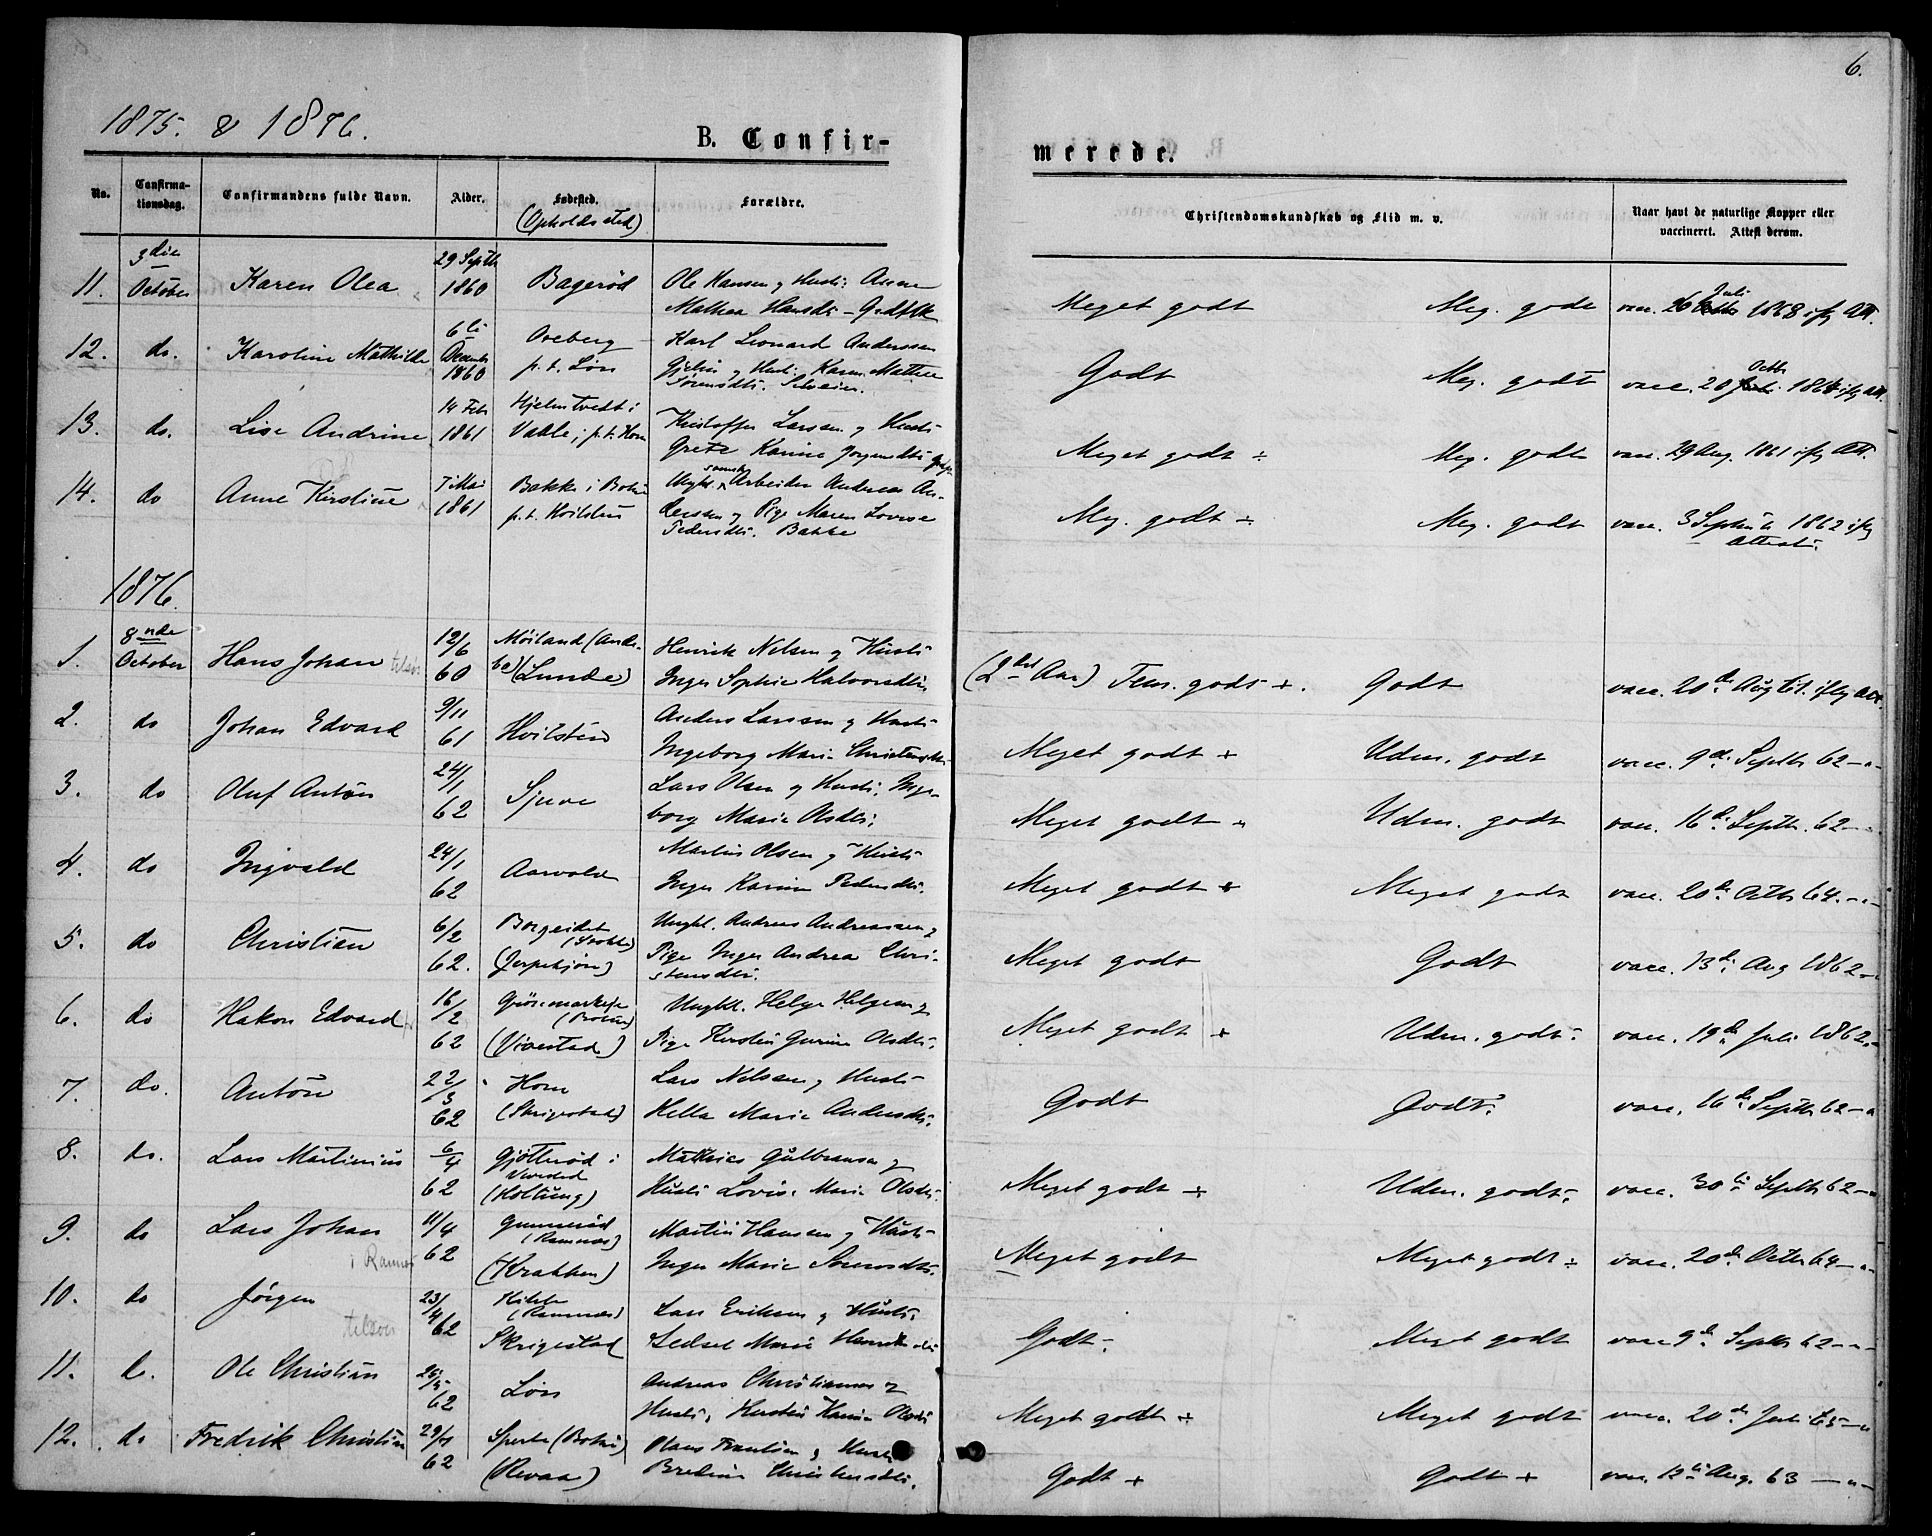 6.
1875. & 1876.
B. Confir-
merede.
No.
Confirma-
tionsdag.
Confirmandens fulde Navn.
Alder.
Fødested.
(Opholdssted)
Forældre.
Christendomskundskab og Flid m. v.
Naar havt de naturlige Kopper eller
vaccineret. Attest derom.
11. 3die October Karen Olea 29 Septb 1860 Bagerød Ole Hansen og Hustr: Anne
Mathea Hansdtr - Gaardflk
Meget godt Meg. godt vacc. 26 Juli 1868 iflg Att.
12. do. Karoline Mathilde 6te December 1860 Oreberg
p. t. Løis
Karl Leonard Anderssen
Gjelin og Hustr: Karen Mathea
Sørensdtr.
Godt Meg. godt vacc. 20 Octb 1868 iflg Att.
13. do. Lise Andrine 14 Feb 1861 Hjelmtvedt i
Vaale; p. t. Horn
Kristoffer Larsen og Hustr
Grete Karine Jørgensdtr
Meget godt ÷ Meg. godt vacc. 29 Aug. 1861 iflg Att.
14. do Anne Kirstine 7 Mai 1861 Bakke i Botne
p. t. Hvilsten
Ungk. svensk Arbeider Andreas An-
derssen og Pige Maren Lovise
Pedersdtr. Bakke
Meg. godt ÷ Meg. godt vacc. 3 Septemb 1862 iflg
Attest.
1876.
1. 8nde October Hans Johan 12/6 60 Møiland (Ande-
bo) (Lunde)
Henrik Nilsen og Hustr
Inger Sophie Halvorsdtr.
(2det Aar) Tem. godt +. Godt vacc. 20de Aug 61. iflg Att.
2. do Johan Edvard 9/11 61 Hvilsten Anders Larssen og Hustr
Ingeborg Marie Christensdtr
Meget godt + Udm. godt vacc. 9de Septb 62 -"-
3. do Oluf Anton 24/1 62 Sjuve Lars Olsen og Hustr. Inge-
borg Marie Olsdtr.
Meget godt Udm. godt vacc. 16de Septb. 62 -"-
4. do Ingvald 24/1 62 Aarvold Martin Olsen og Hustr
Inger Karine Pedersdtr.
Meget godt + Meget godt vacc. 20de Octb 64. -"-
5. do Christian 6/2 62. Borgeidet
(Jerpekjøn)
Ungkl. Andreas Andreassen og
Pige Inger Andrea Chri-
stensdtr.
Meget godt Godt vacc. 13de Aug 1862 -"
6. do Hakon Edvard 16/2 62 (Botne)
(Vivestad)
Ungkl. Helge Helgesen og
Pige Kirstin Gurine Olsdtr.
Meget godt + Udm. godt. vacc. 19de Juli 1862. -"
7. do. Anton 22/3 62 Horn
(Skrigestad)
Lars Nilsen og Hustr
Hella Marie Andersdtr.
Godt Godt. vacc. 16de Septb 62 -"
8. do. Lars Martinius 6/4 62 Gjøtterød i
Vivestad
(Holtung)
Mathias Gulbransen og
Hustr Lovise Marie Olsdtr.
Meget godt + Udm. godt. vacc. 30te Septb 62 -"
9. do Lars Johan 11/4 62 Gunnerød
(Ramnæs)
(Krakken)
Martin Hansen og Hustr
Inger Marie Sørensdtr.
i Ramnes
Meget godt Meget godt ÷ vacc. 20de Octb 64 -"-
10. do Jørgen 23/4 62 Hikke
(Ramnæs)
Skrigestad
Lars Eriksen og Hustr.
Sedsel Marie Henriksdtr
Godt. Meget godt vacc 9de Septb 62 -"-
11. do. Ole Christian 26/5 62 Løis Andreas Christiansen og
Hustr. Kirstin Karine Olsdtr
Meget godt + Meget godt vacc. 20de Juli 65 -"
12. do Fredrik Christian 29/ 62 Sperte (Botne)
(Revaa)
Olaus Frantsen og Hustr
Bredine Christensdtr.
Godt + Godt + vacc. 12te Aug. 63 -"-